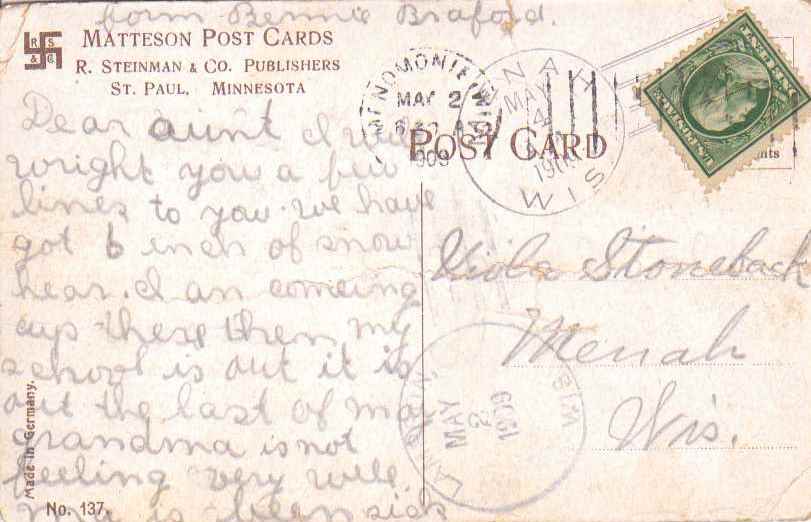 form Bernie Braford.
R S & C
MATTESON POST CARDS
R. STEINMAN & CO. PUBLISHERS
ST. PAUL, MINNESOTA
Dear aunt I will
wright you a few
lines to you. we have
got 6 inch of snow
hear. I am comeing
up there then my
school is out it is
out the last of may
grandma is not
feeling very well
is been sick
Made in Germany.
No. 137.
MENOMONIE
MAY 2
1909
NENAH
MAY
4
1909
WIS
POST CARD
Viola Stoneback
Menah
Wis.
MAY
2
1909
WIS